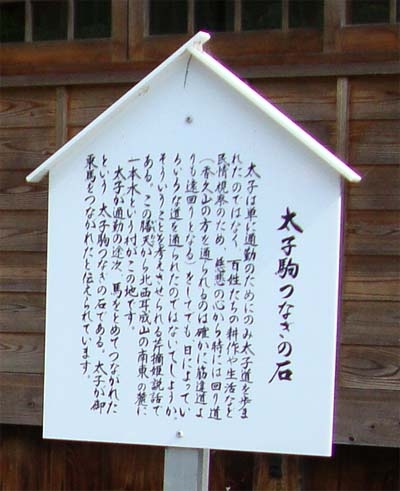 太子駒つなぎの石
太子は単に通勤のためにのみ太子道を歩ま
れたのではなく、百姓たちの耕作や生活など
民情視察のため、慈悲の心から時には回り道
(香久山の方を通られるのは確かに筋違道よ
りも遠回りとなる)をしてでも、日によってい
ろいろな道を通られたのではないでしょうか
そういうことを考えさせられる芹摘姫説話で
ある。この膳夫から北西耳成山の南東の麓に
一本木という村がこの地です。
太子が通勤の途次、馬をとめてつながれた
という 太子駒つなぎの石である。太子が御
乗馬をつながれたと伝えられています。